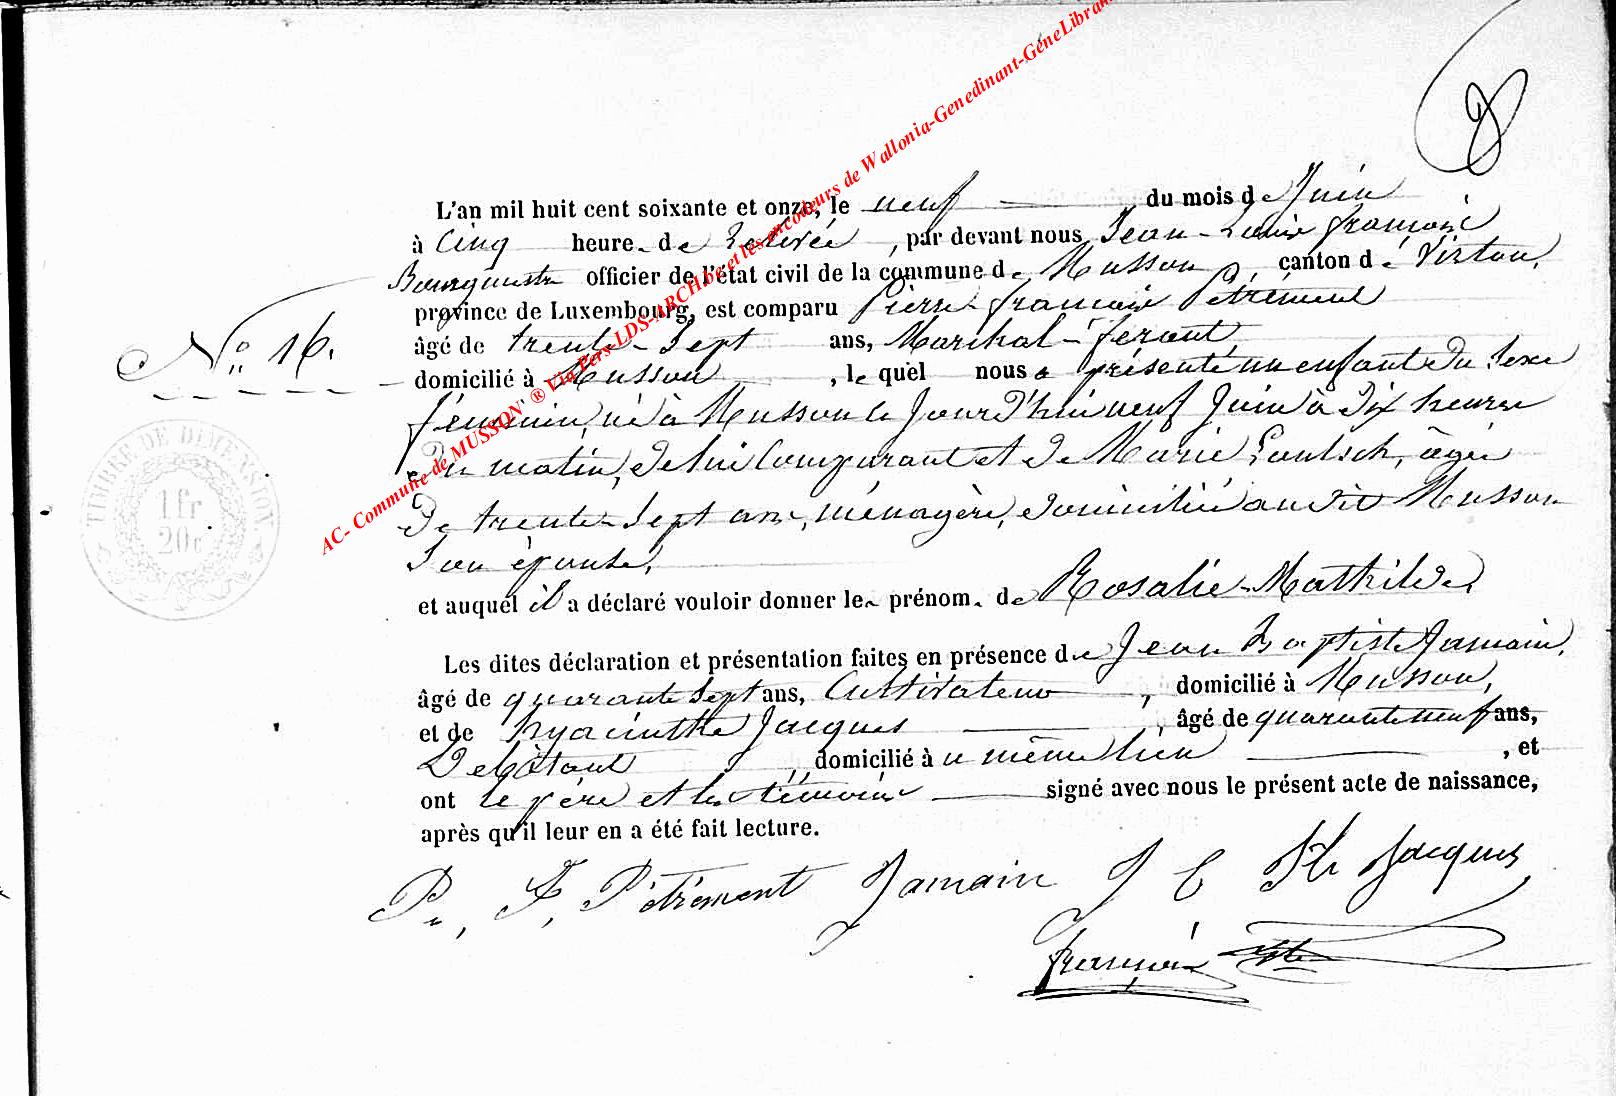 8
L'an mil huit cent soixante et onze, le neuf du mois de Juin
à Cinq heure. de relevée, par devant nous Jean-Louis françois
Bourgmestre officier de l'état civil de la commune de Musson, canton de Virton,
province de Luxembourg, est comparu Pierre-françois Pétrement
N° 16.
âgé de trente-sept ans, Marchal-ferant,
domicilié à Musson, le quel nous a présenté un enfant du sexe
féminin, né à Musson le Jourd'hui neuf Juin à dix heures
du matin, de lui Comparant et de Marie Loutsch, âgée
de trente-sept ans, ménagère, domiciliée au dit Musson
Son épouse,
et auquel il a déclaré vouloir donner les prénom. de Rosalie-Mathilde.
Les dites déclaration et présentation faites en présence de Jean Baptiste Jamain,
âgé de quarante sept ans, Cultivateur, domicilié à Musson,
et de hyacinthe Jacques, âgé de quarante neuf ans,
Debitant, domicilié à u même lieu, et
ont le père et les témoins signé avec nous le présent acte de naissance,
après qu'il leur en a été fait lecture.
P. F. Pétrement Jamain J B Hte Jacques
françois
TIMBRE DE DIMENSION
1 fr
20 c
AC- Commune de MUSSON ® Via Pers-LDS-ARCH.be et les encodeurs de Wallonia-Genedinant-GeneLibran